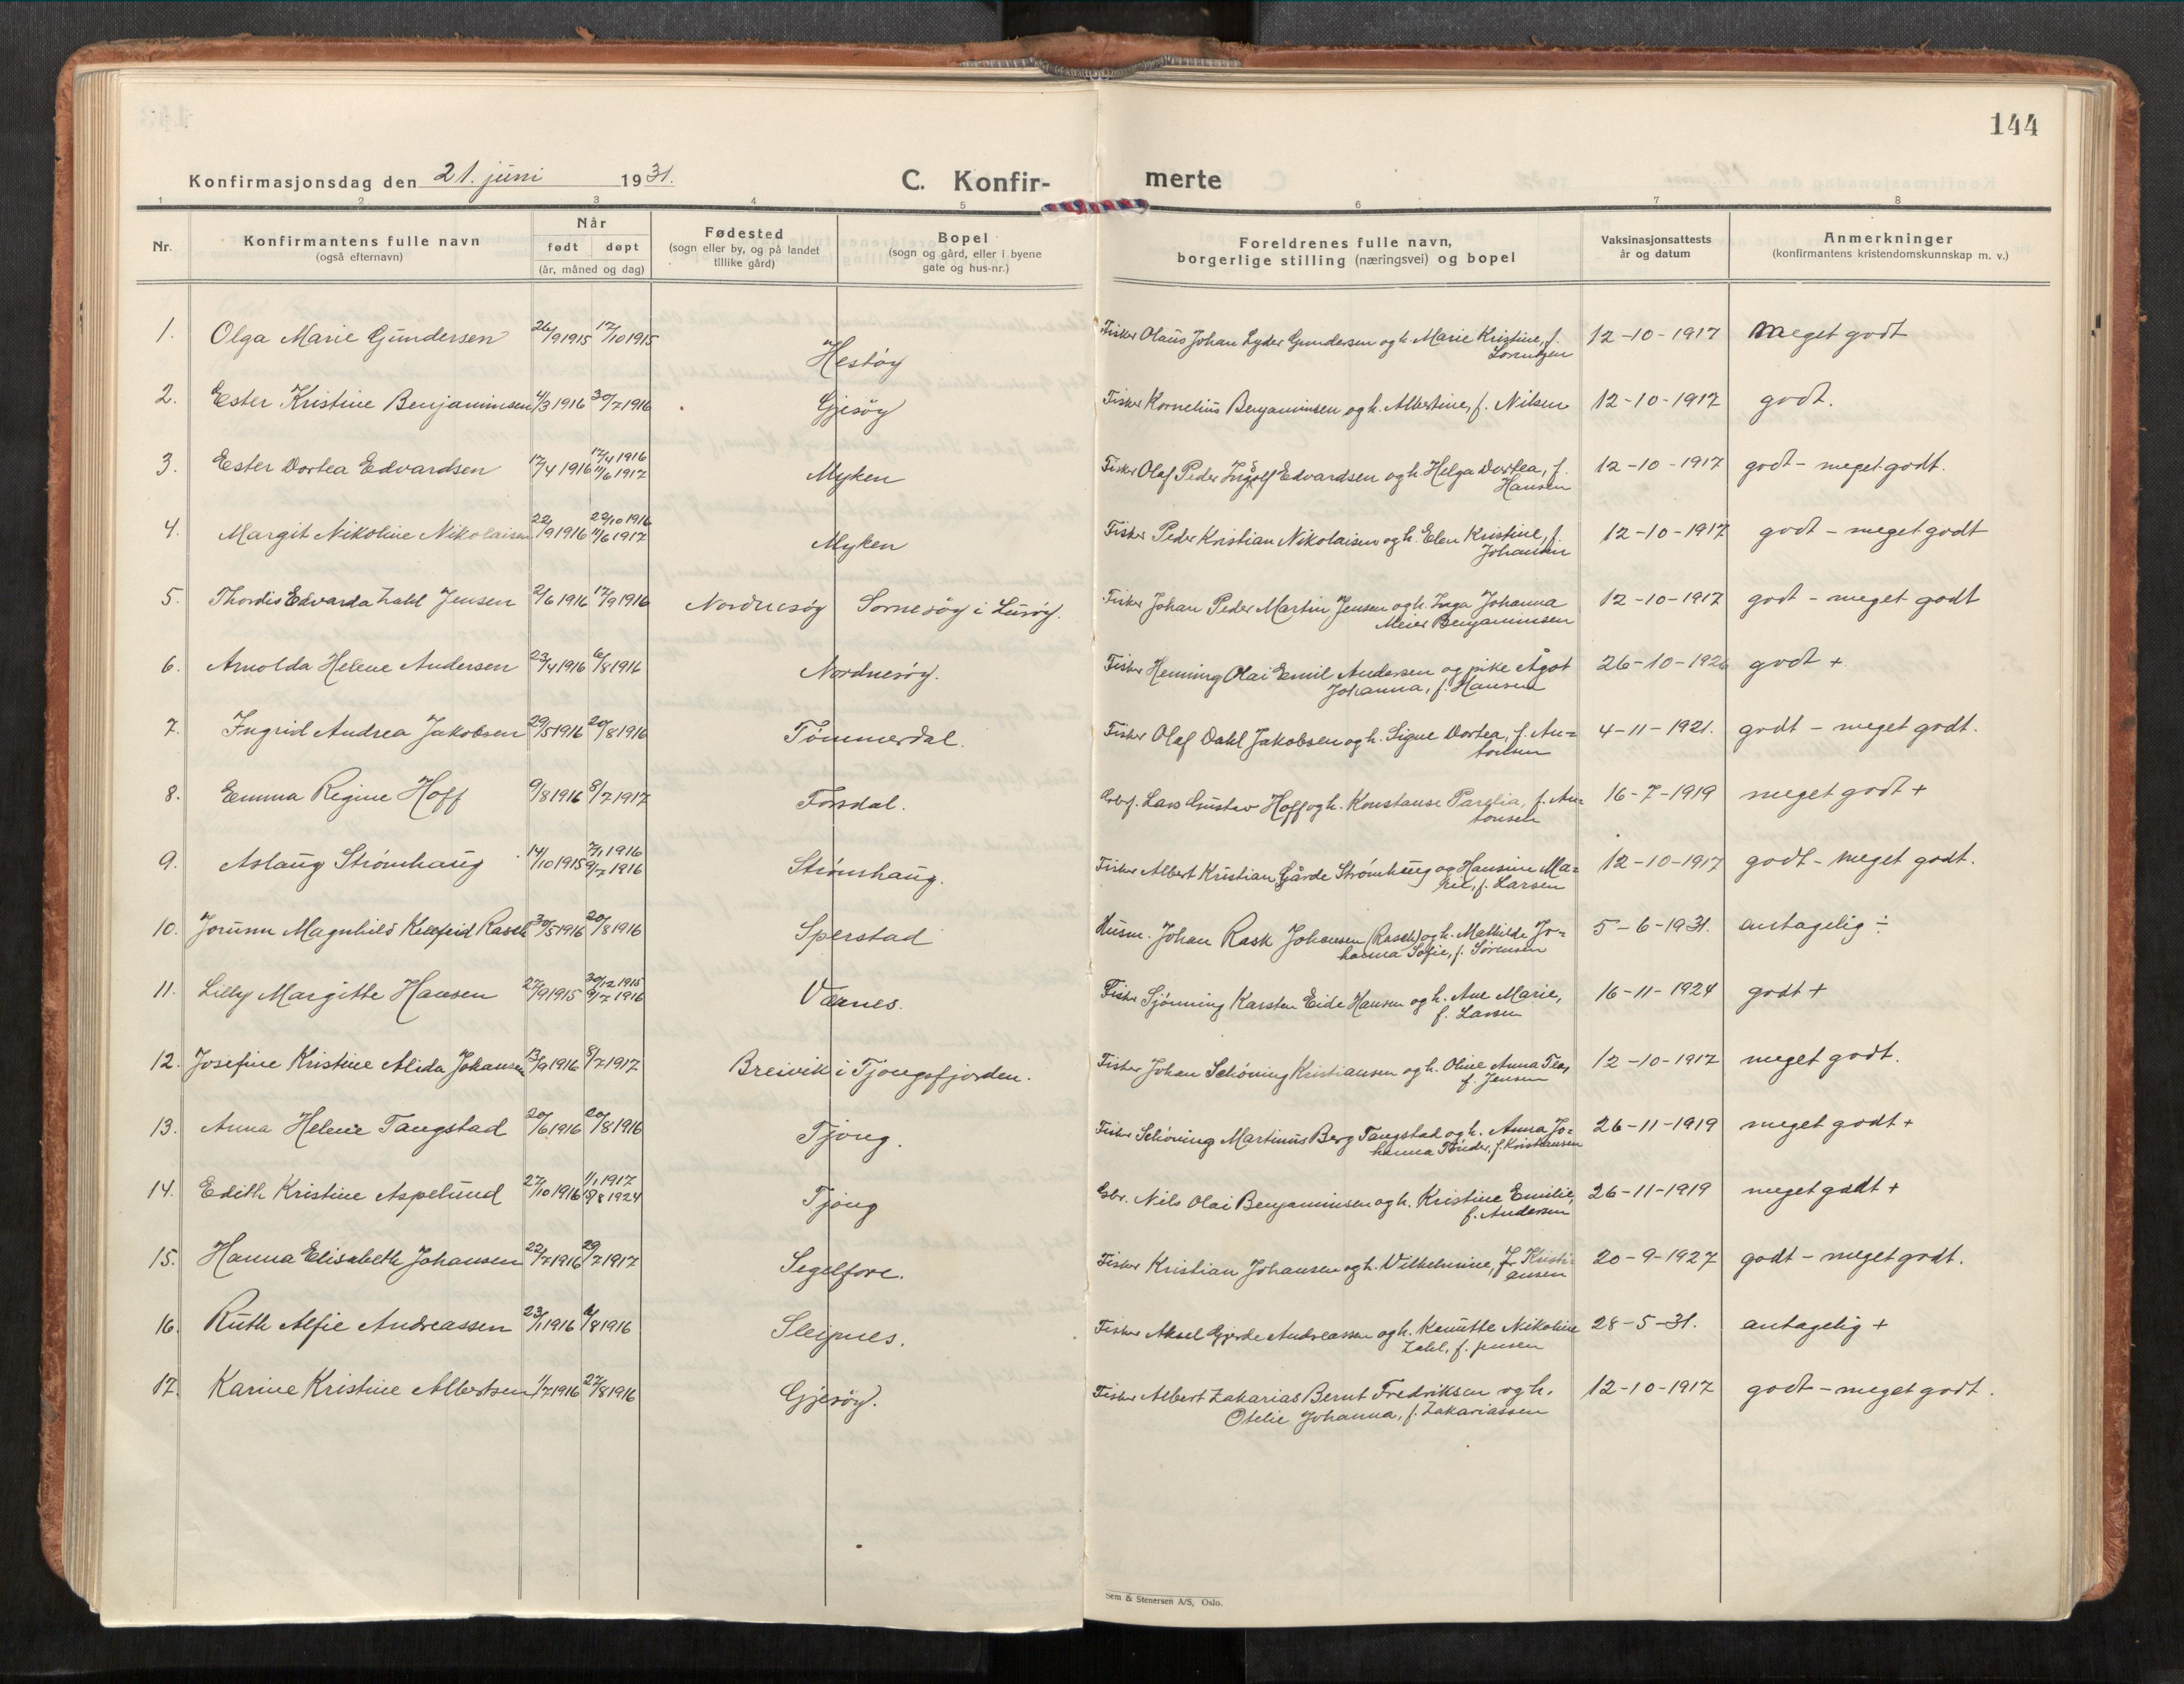 144
Konfirmasjonsdag den 21. juni 1931.
C. Konfir-
merte
1 2 3 4 5 6 7 8
Nr.
Konfirmantens fulle navn
(også efternavn)
Når
født døpt
(år, måned og dag)
Fødested
(sogn eller by, og på landet
tillike gård)
Bopel
(sogn og gård, eller i byene
gate og hus-nr.)
Foreldrenes fulle navn,
borgerlige stilling (næringsvei) og bopel
Vaksinasjonsattests
år og datum
Anmerkninger
(konfirmantens kristendomskunnskap m. v.)
1. Olga Marie Gundersen 26/9 1915 17/10 1915 Hestøy Fisker Olaus Johan Lyder Gundersen og h. Marie Kristine, f. 12-10-1917 Meget godt
Lorentzen
2. Ester Kristine Benjaminsen 4/3 1916 30/7 1916 Gjesøy Fisker Kornelius Benjaminsen og h. Albertine, f. Nilsen 12-10-1917 godt.
17/4 1916
3. Ester Dortea Edvardsen 17/4 1916 11/6 1917 Myken Fisker Olaf Peder Ingolf Edvardsen og h. Helga Dortea, f. 12-10-1917 godt - meget godt.
Hansen
22/10 1916
4. Margit Nikoline Nikolaisen 22/9 1916 11/6 1917 Myken Fisker Peder Kristian Nikolaisen og h. Elen Kristine, f. 12-10-1917 godt - meget godt
Johansen
5. Thordis Edvarda Zahl Jensen 2/6 1916 17/9 1916 Nordnesøy Sørnesøy i Lurøy. Fisker Johan Peder Martin Jensen og h. Inga Johanna 12-10-1917 godt - meget godt
Meier Benjaminsen
6. Arnolda Helene Andersen 23/4 1916 6/8 1916 Nordnesøy. Fisker Henning Olai Emil Andersen og pike Ågot 26-10-1926 godt +
Johanna, f. Hansen
7. Ingrid Andrea Jakobsen 29/5 1916 20/8 1916 Tømmerdal. Fisker Olaf Dahl Jakobsen og h. Signe Dortea, f. An= 4-11-1921. godt - meget godt.
tonsen
8. Emma Regine Hoff 9/8 1916 8/7 1917 Forsdal. Arb.f. Lars Gustav Hoff og h. Konstanse Parelia, f. An= 16-7-1919 meget godt +
tonsen
7/1 1916
9. Aslaug Strømhaug 14/10 1915 9/7 1916 Strømshaug. Fisker Albert Kristian Gårde Strømhaug og Hansine Ma= 12-10-1917 godt - meget godt.
rie, f. Larsen
10. Jorunn Magnhild Kellfrid Rasch 30/5 1916 20/8 1916 Sperstad Husm. Johan Rask Johansen (Rasch) og h. Mathilde Jo= 5-6-1931. antagelig ÷
hanna Sofie, f. Sørensen
30/12 1915
11. Lilly Margitte Hansen 27/9 1915 9/7 1916 Værnes. Fisker Sjønning Karsten Eide Hansen og h. Ane Marie, 16-11-1924 godt +
f. Larsen
12. Josefine Kristine Alida Johansen 13/9 1916 8/7 1917 Breivik i Tjongsfjorden. Fisker Johan Schøning Kristiansen og h. Oline Anna Tea, 12-10-1917 meget godt.
f. Jensen
13. Anna Helene Tangstad 20/6 1916 20/8 1916 Tjong. Fisker Schöning Martinus Berg Tangstad og h. Anna Jo= 26-11-1919 meget godt +
hanna Tønder, f. Kristiansen
1/1 1917
14. Edith Kristine Aspelund 27/10 1916 /8 1924 Tjong Gbr. Nils Olai Benjaminsen og h. Kristine Emilie, 26-11-1919 meget godt +
f. Andersen
15. Hanna Elisabeth Johansen 22/7 1916 29/7 1917 Segelfore. Fisker Kristian Johansen og h. Vilhelmine, f. Kristi- 20-9-1927 godt - meget godt.
ansen
16. Ruth Alfie Andreassen 23/1 1916 6/8 1916 Sleipnes. Fisker Aksel Gjerde Andreassen og h. Kanutte Nikoline 28-5-31. antagelig +
Zahl, f. Jensen
17. Karine Kristine Albertsen 1/7 1916 27/8 1916 Gjesøy. Fisker Albert Zakarias Bernt Fredriksen og h. 12-10-1917 godt - meget godt.
Otelie Johanna, f. Zakariassen
Sem & Stenersen A/S, Oslo.